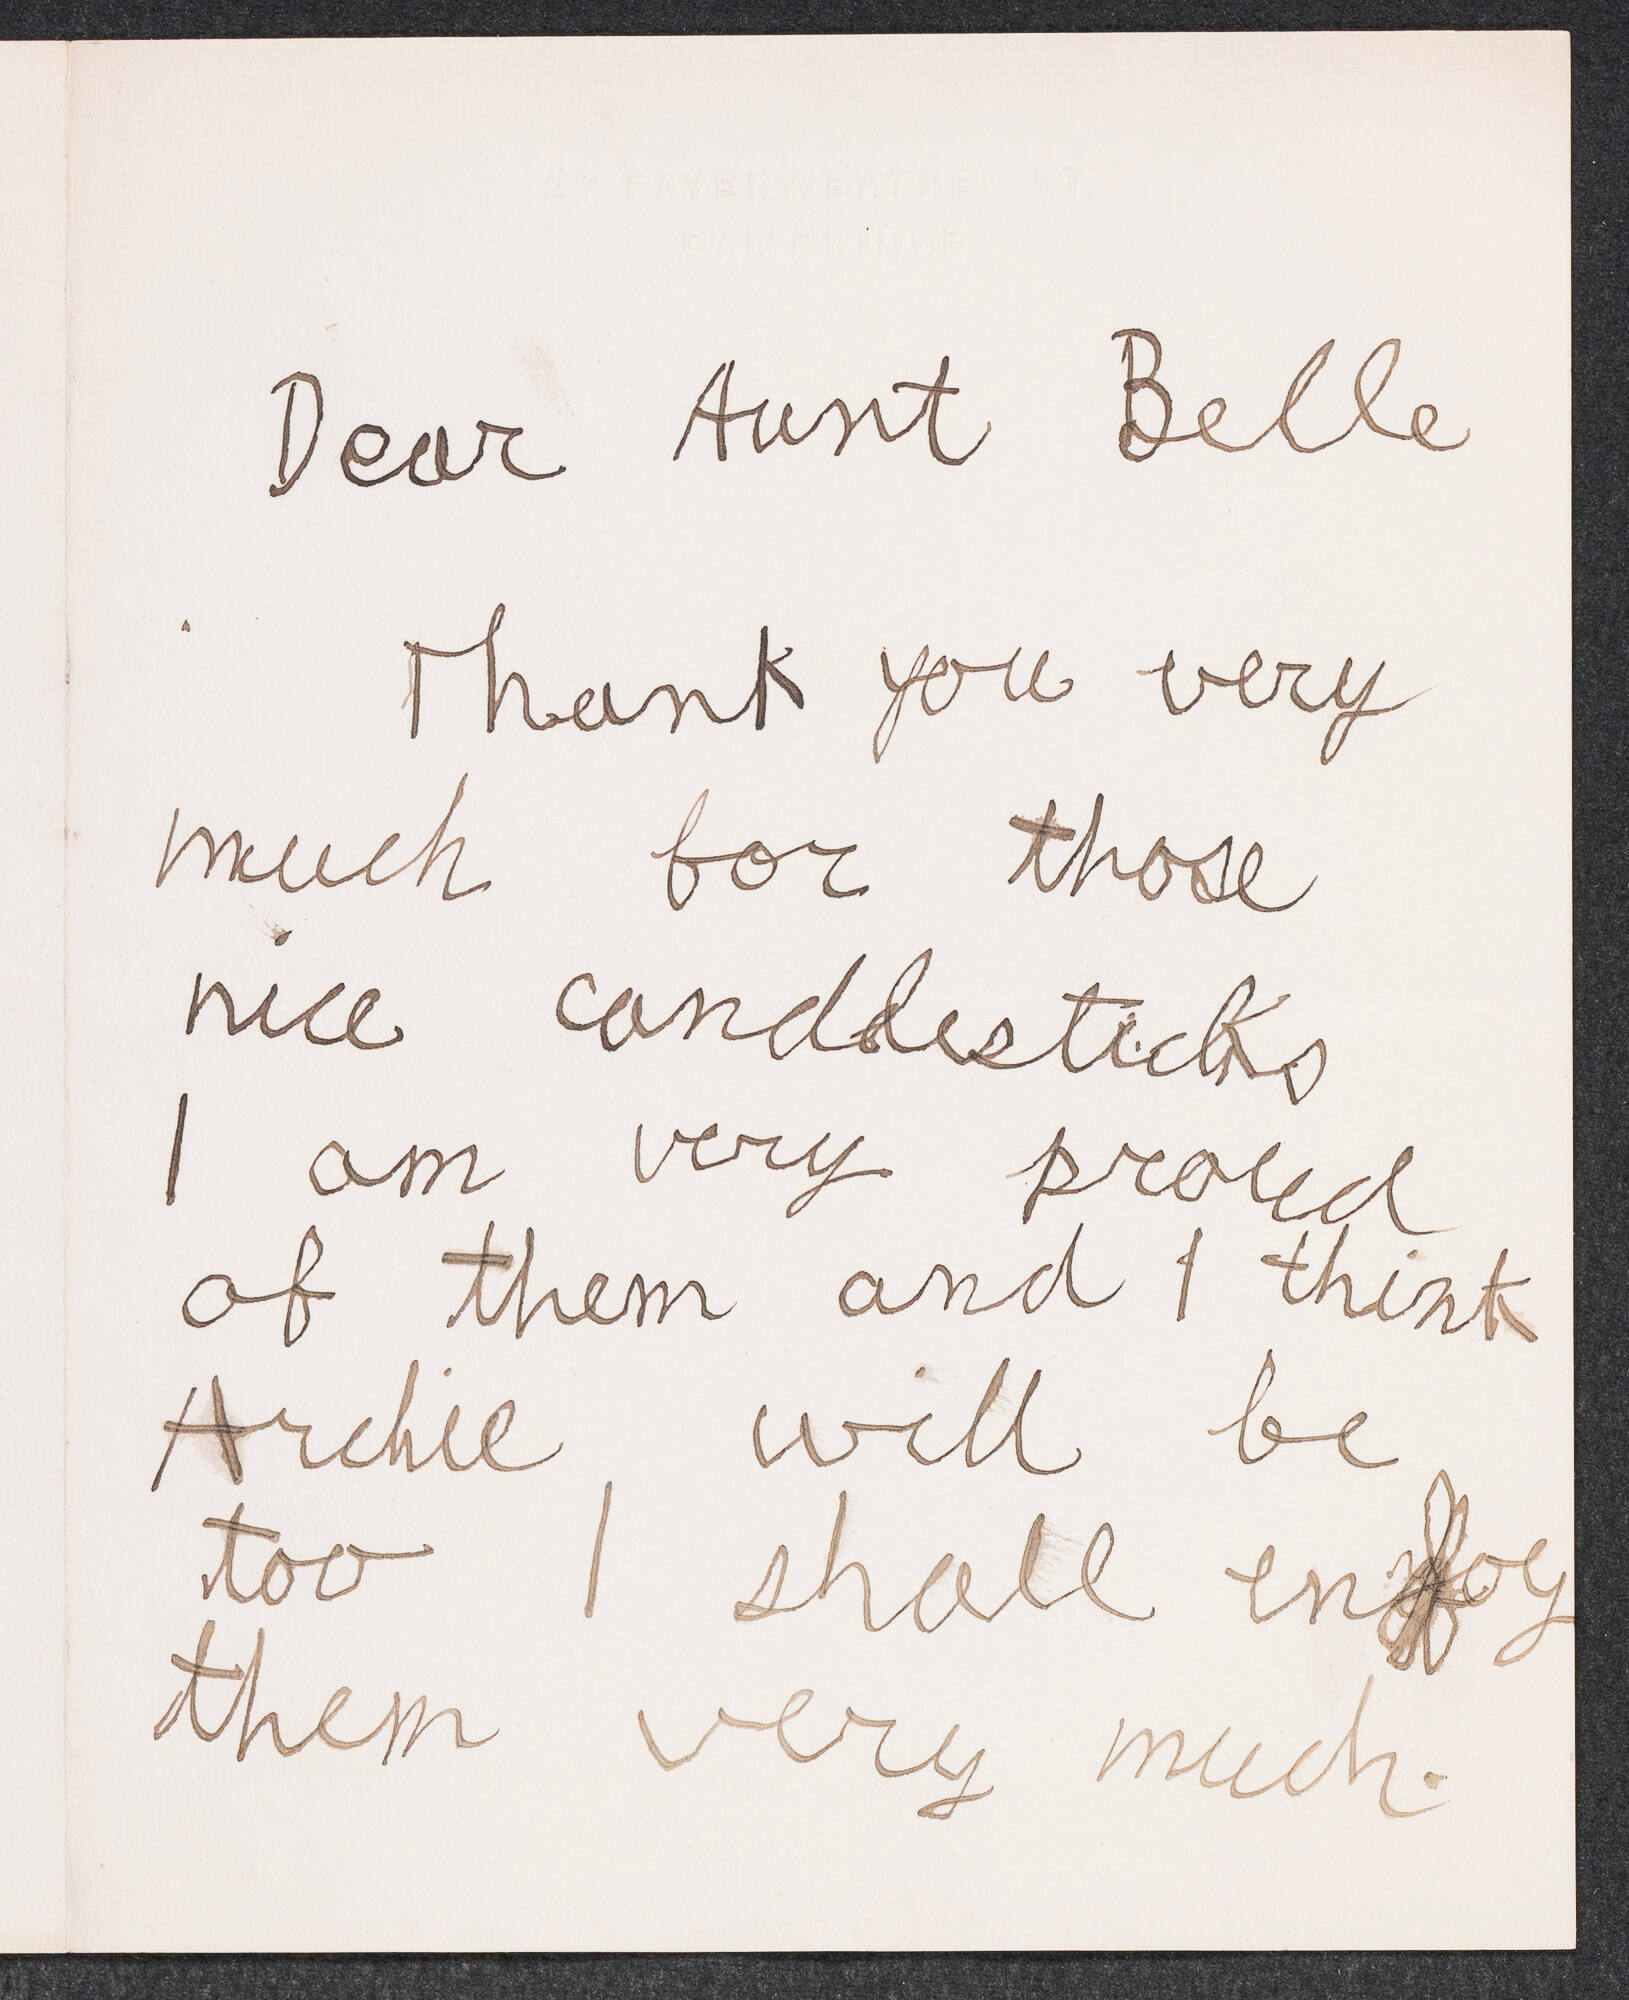 27 FAYERWEATHER ST.
CAMBRIDGE
Dear Aunt Belle
Thank you very
much for those
nice candlesticks
I am very proud
of them and I think
Archie will be
too I shall enjoy
them very much.